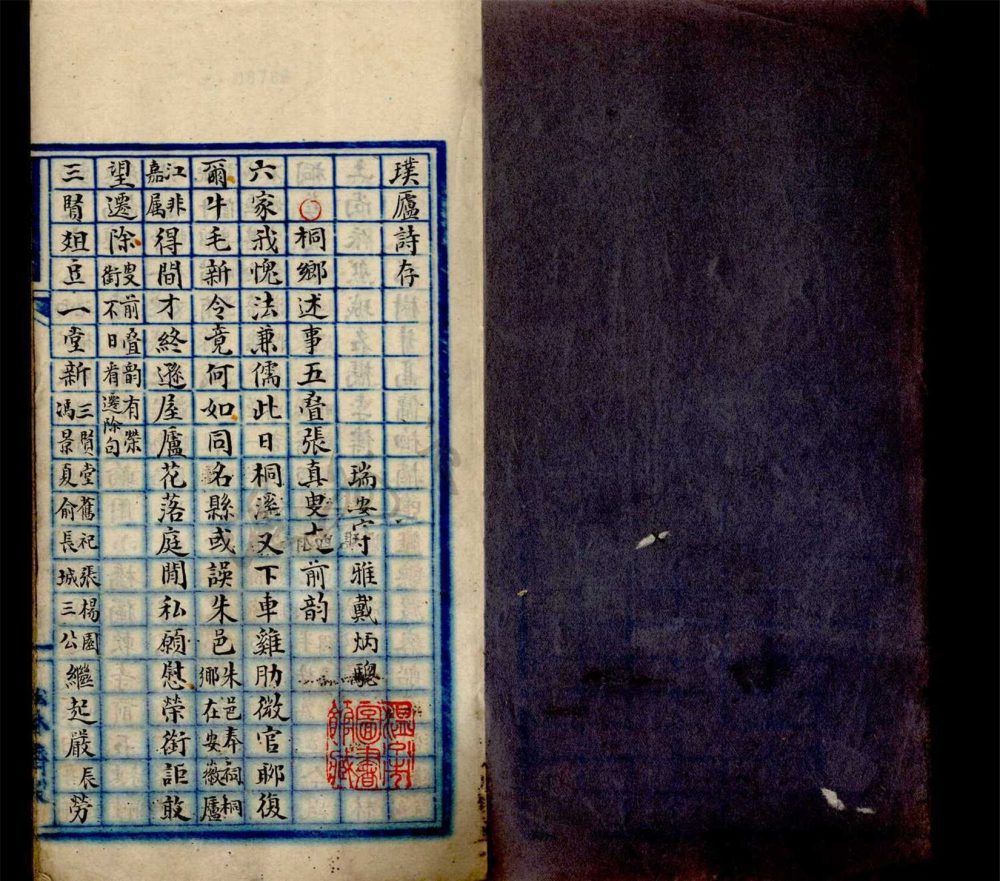 璞廬詩存
瑞安守雅戴炳驄
桐鄉述事五疊張真叟前韵
六家我愧法兼儒此日桐溪又下車雞肋微官聊復
爾牛毛新令竟何如同名縣或誤朱邑朱邑奉祠桐鄉在安徽廬
江非嘉属得間才終遜屋廬花落庭閒私願慰榮銜詎敢
望遷除叟前叠韵有榮銜不日看遷除句
三賢俎豆一堂新三賢堂舊祀張楊園馮景夏俞長城三公繼起嚴辰勞
溫州市圖書館藏